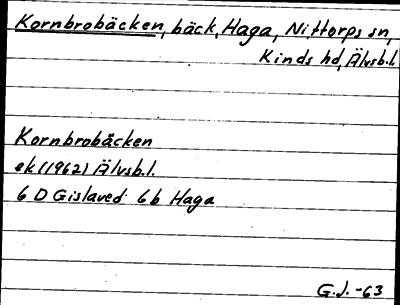 Kornbrobäcken, bäck, Haga, Nittorps sn,
Kinds hd, Älvsb.l.
Kornbrobäcken
ek (1962) Älvsb.l.
6 D Gislaved 6b Haga
G.J. -63